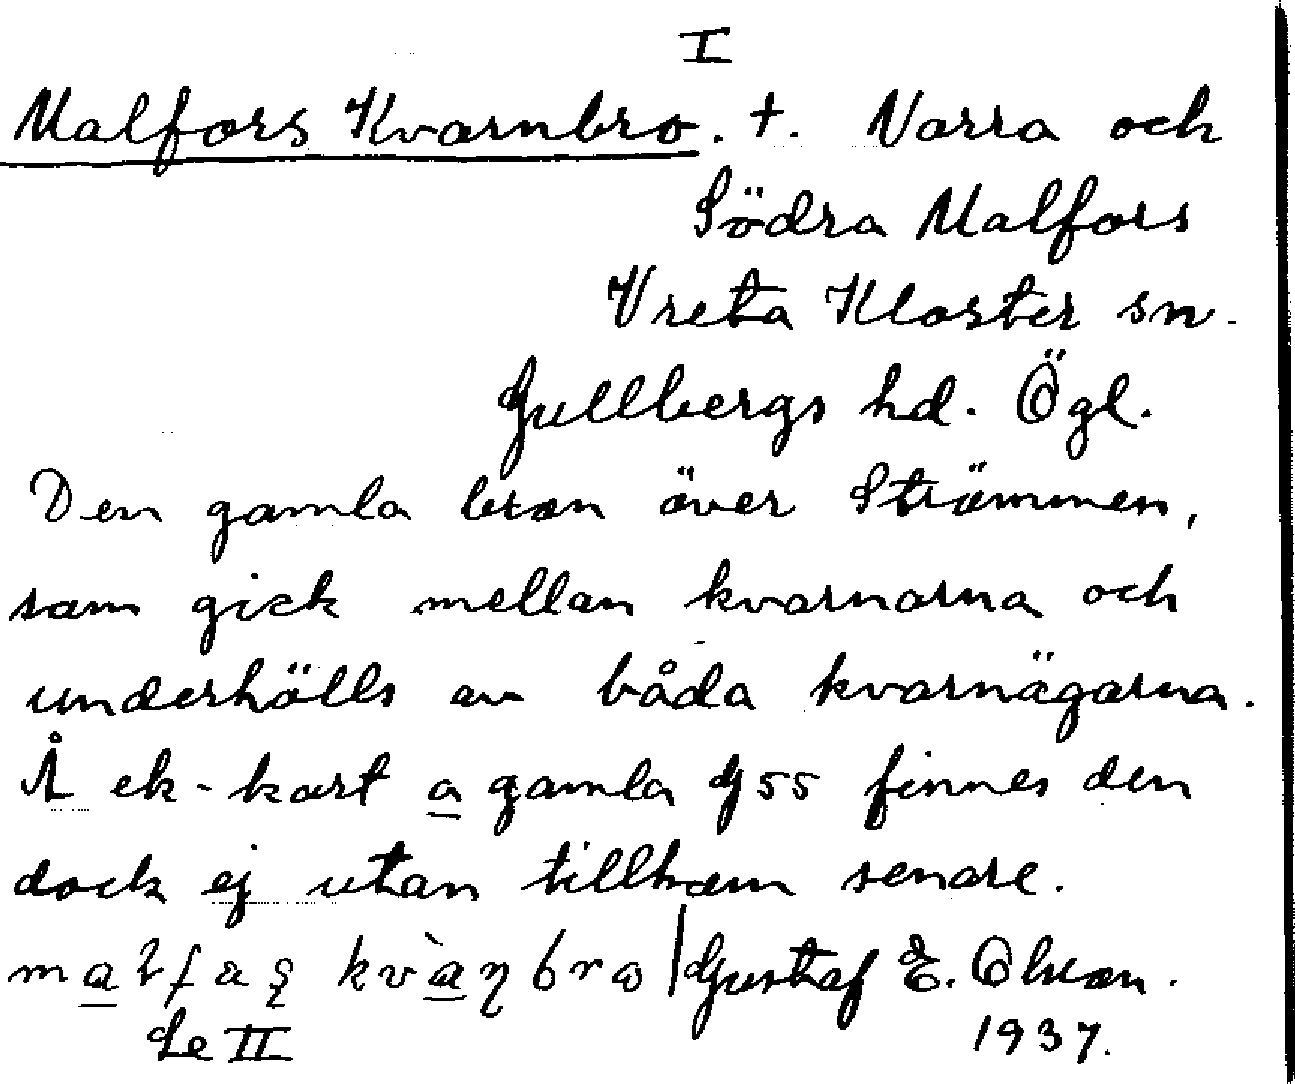 I
Malfors Kvarnbro. †. Norra och
Södra Malfors
Vreta Kloster sn.
Gullbergs hd. Ögl.
Den gamla bron över Strömmen,
som gick mellan kvarnarna och
underhölls av båda kvarnägarna.
Å ek-kart a gamla G55 finnes den
dock ej utan tillkom senare.
Gustaf E. Olson.
Se II 1937.